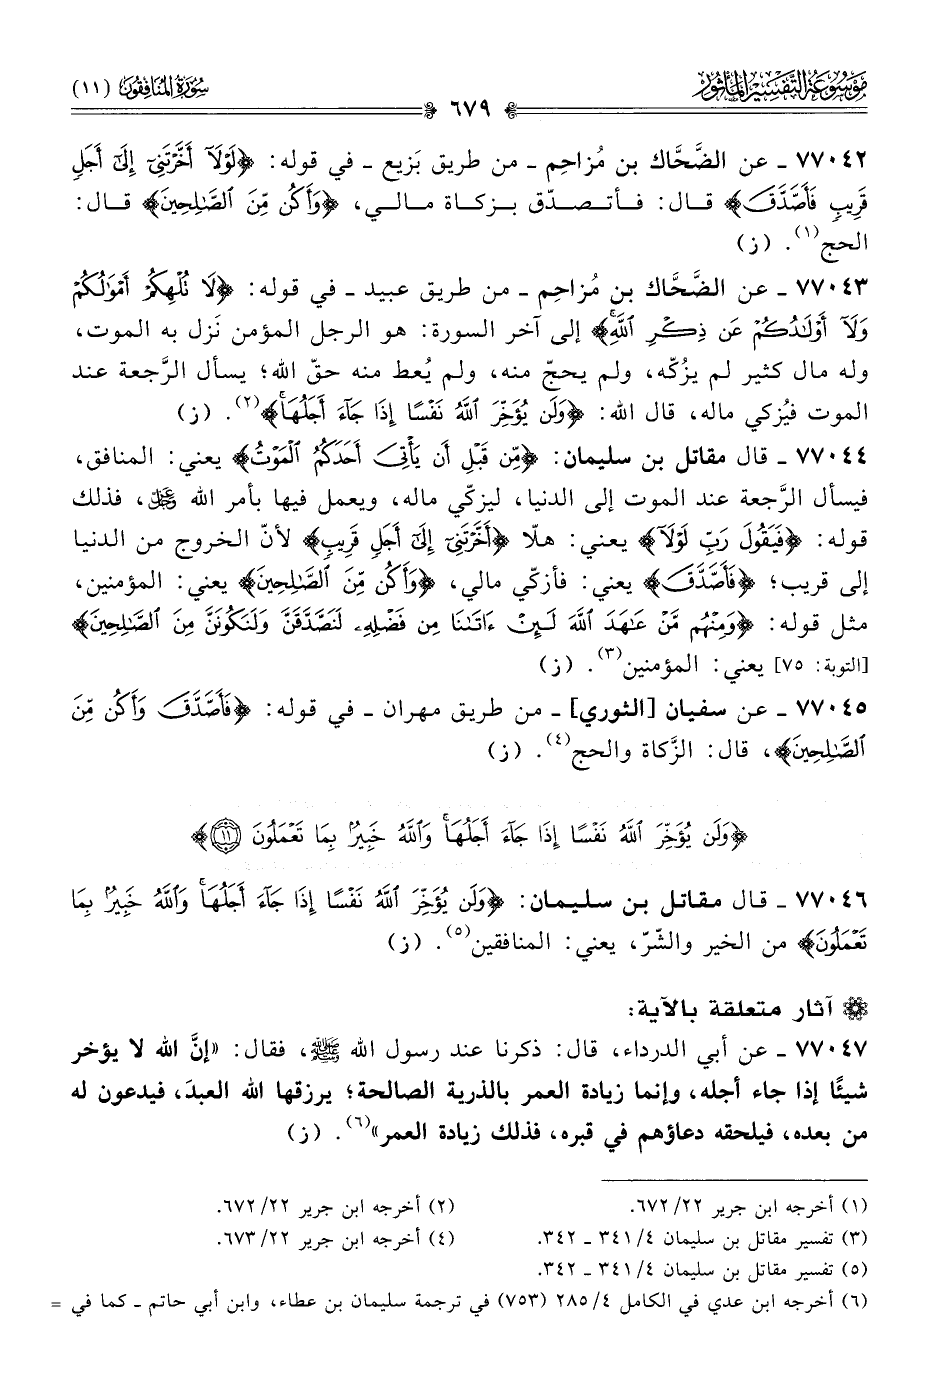 مَوْسُوعَةُ التَّفْسِيرِ المَأْثُورِ
سُورَةُ المُنَافِقُونَ (١١)
٦٧٩
٧٧٠٤٢ ـ عن الضَّحَّاك بن مُزاحِم ـ من طريق بَزيع ـ في قوله: ﴿لَوْلَآ أَخَّرْتَنِيٓ إِلَىٰٓ أَجَلٖ
قَرِيبٖ فَأَصَّدَّقَ﴾ قال: فأتصدّق بزكاة مالي، ﴿وَأَكُن مِّنَ ٱلصَّٰلِحِينَ﴾ قال:
الحج(١). (ز)
٧٧٠٤٣ ـ عن الضَّحَّاك بن مُزاحِم ـ من طريق عبيد ـ في قوله: ﴿لَا تُلْهِكُمْ أَمْوَٰلُكُمْ
وَلَآ أَوْلَٰدُكُمْ عَن ذِكْرِ ٱللَّهِۚ﴾ إلى آخر السورة: هو الرجل المؤمن نَزل به الموت،
وله مال كثير لم يزُكّه، ولم يحجّ منه، ولم يُعط منه حقّ الله؛ يسأل الرَّجعة عند
الموت فيُزكي ماله، قال الله: ﴿وَلَن يُؤَخِّرَ ٱللَّهُ نَفْسًا إِذَا جَآءَ أَجَلُهَاۚ﴾(٢). (ز)
٧٧٠٤٤ ـ قال مقاتل بن سليمان: ﴿مِّن قَبْلِ أَن يَأْتِىَ أَحَدَكُمُ ٱلْمَوْتُ﴾ يعني: المنافق،
فيسأل الرَّجعة عند الموت إلى الدنيا، ليزكّي ماله، ويعمل فيها بأمر الله ﷿، فذلك
قوله: ﴿فَيَقُولَ رَبِّ لَوْلَآ﴾ يعني: هلّا ﴿أَخَّرْتَنِىٓ إِلَىٰٓ أَجَلٖ قَرِيبٖ﴾ لأنّ الخروج من الدنيا
إلى قريب؛ ﴿فَأَصَّدَّقَ﴾ يعني: فأزكّي مالي، ﴿وَأَكُن مِّنَ ٱلصَّٰلِحِينَ﴾ يعني: المؤمنين،
مثل قوله: ﴿وَمِنْهُم مَّنْ عَٰهَدَ ٱللَّهَ لَئِنْ ءَاتَىٰنَا مِن فَضْلِهِۦ لَنَصَّدَّقَنَّ وَلَنَكُونَنَّ مِنَ ٱلصَّٰلِحِينَ﴾
[التوبة: ٧٥] يعني: المؤمنين(٣). (ز)
٧٧٠٤٥ ـ عن سفيان [الثوري] ـ من طريق مهران ـ في قوله: ﴿فَأَصَّدَّقَ وَأَكُن مِّنَ
ٱلصَّٰلِحِينَ﴾، قال: الزَّكاة والحج(٤). (ز)
﴿وَلَن يُؤَخِّرَ ٱللَّهُ نَفْسًا إِذَا جَآءَ أَجَلُهَاۚ وَٱللَّهُ خَبِيرُۢ بِمَا تَعْمَلُونَ ١١﴾
٧٧٠٤٦ ـ قال مقاتل بن سليمان: ﴿وَلَن يُؤَخِّرَ ٱللَّهُ نَفْسًا إِذَا جَآءَ أَجَلُهَاۚ وَٱللَّهُ خَبِيرُۢ بِمَا
تَعْمَلُونَ﴾ من الخير والشّرّ، يعني: المنافقين(٥). (ز)
آثار متعلقة بالآية:
٧٧٠٤٧ ـ عن أبي الدرداء، قال: ذكرنا عند رسول الله ﷺ، فقال: «إنَّ الله لا يؤخر
شيئًا إذا جاء أجله، وإنما زيادة العمر بالذرية الصالحة؛ يرزقها الله العبدَ، فيدعون له
من بعده، فيلحقه دعاؤهم في قبره، فذلك زيادة العمر»(٦). (ز)
(١) أخرجه ابن جرير ٢٢/ ٦٧٢.
(٢) أخرجه ابن جرير ٢٢/ ٦٧٢.
(٣) تفسير مقاتل بن سليمان ٤/ ٣٤١ ـ ٣٤٢.
(٤) أخرجه ابن جرير ٢٢/ ٦٧٣.
(٥) تفسير مقاتل بن سليمان ٤/ ٣٤١ ـ ٣٤٢.
(٦) أخرجه ابن عدي في الكامل ٤/ ٢٨٥ (٧٥٣) في ترجمة سليمان بن عطاء، وابن أبي حاتم ـ كما في =